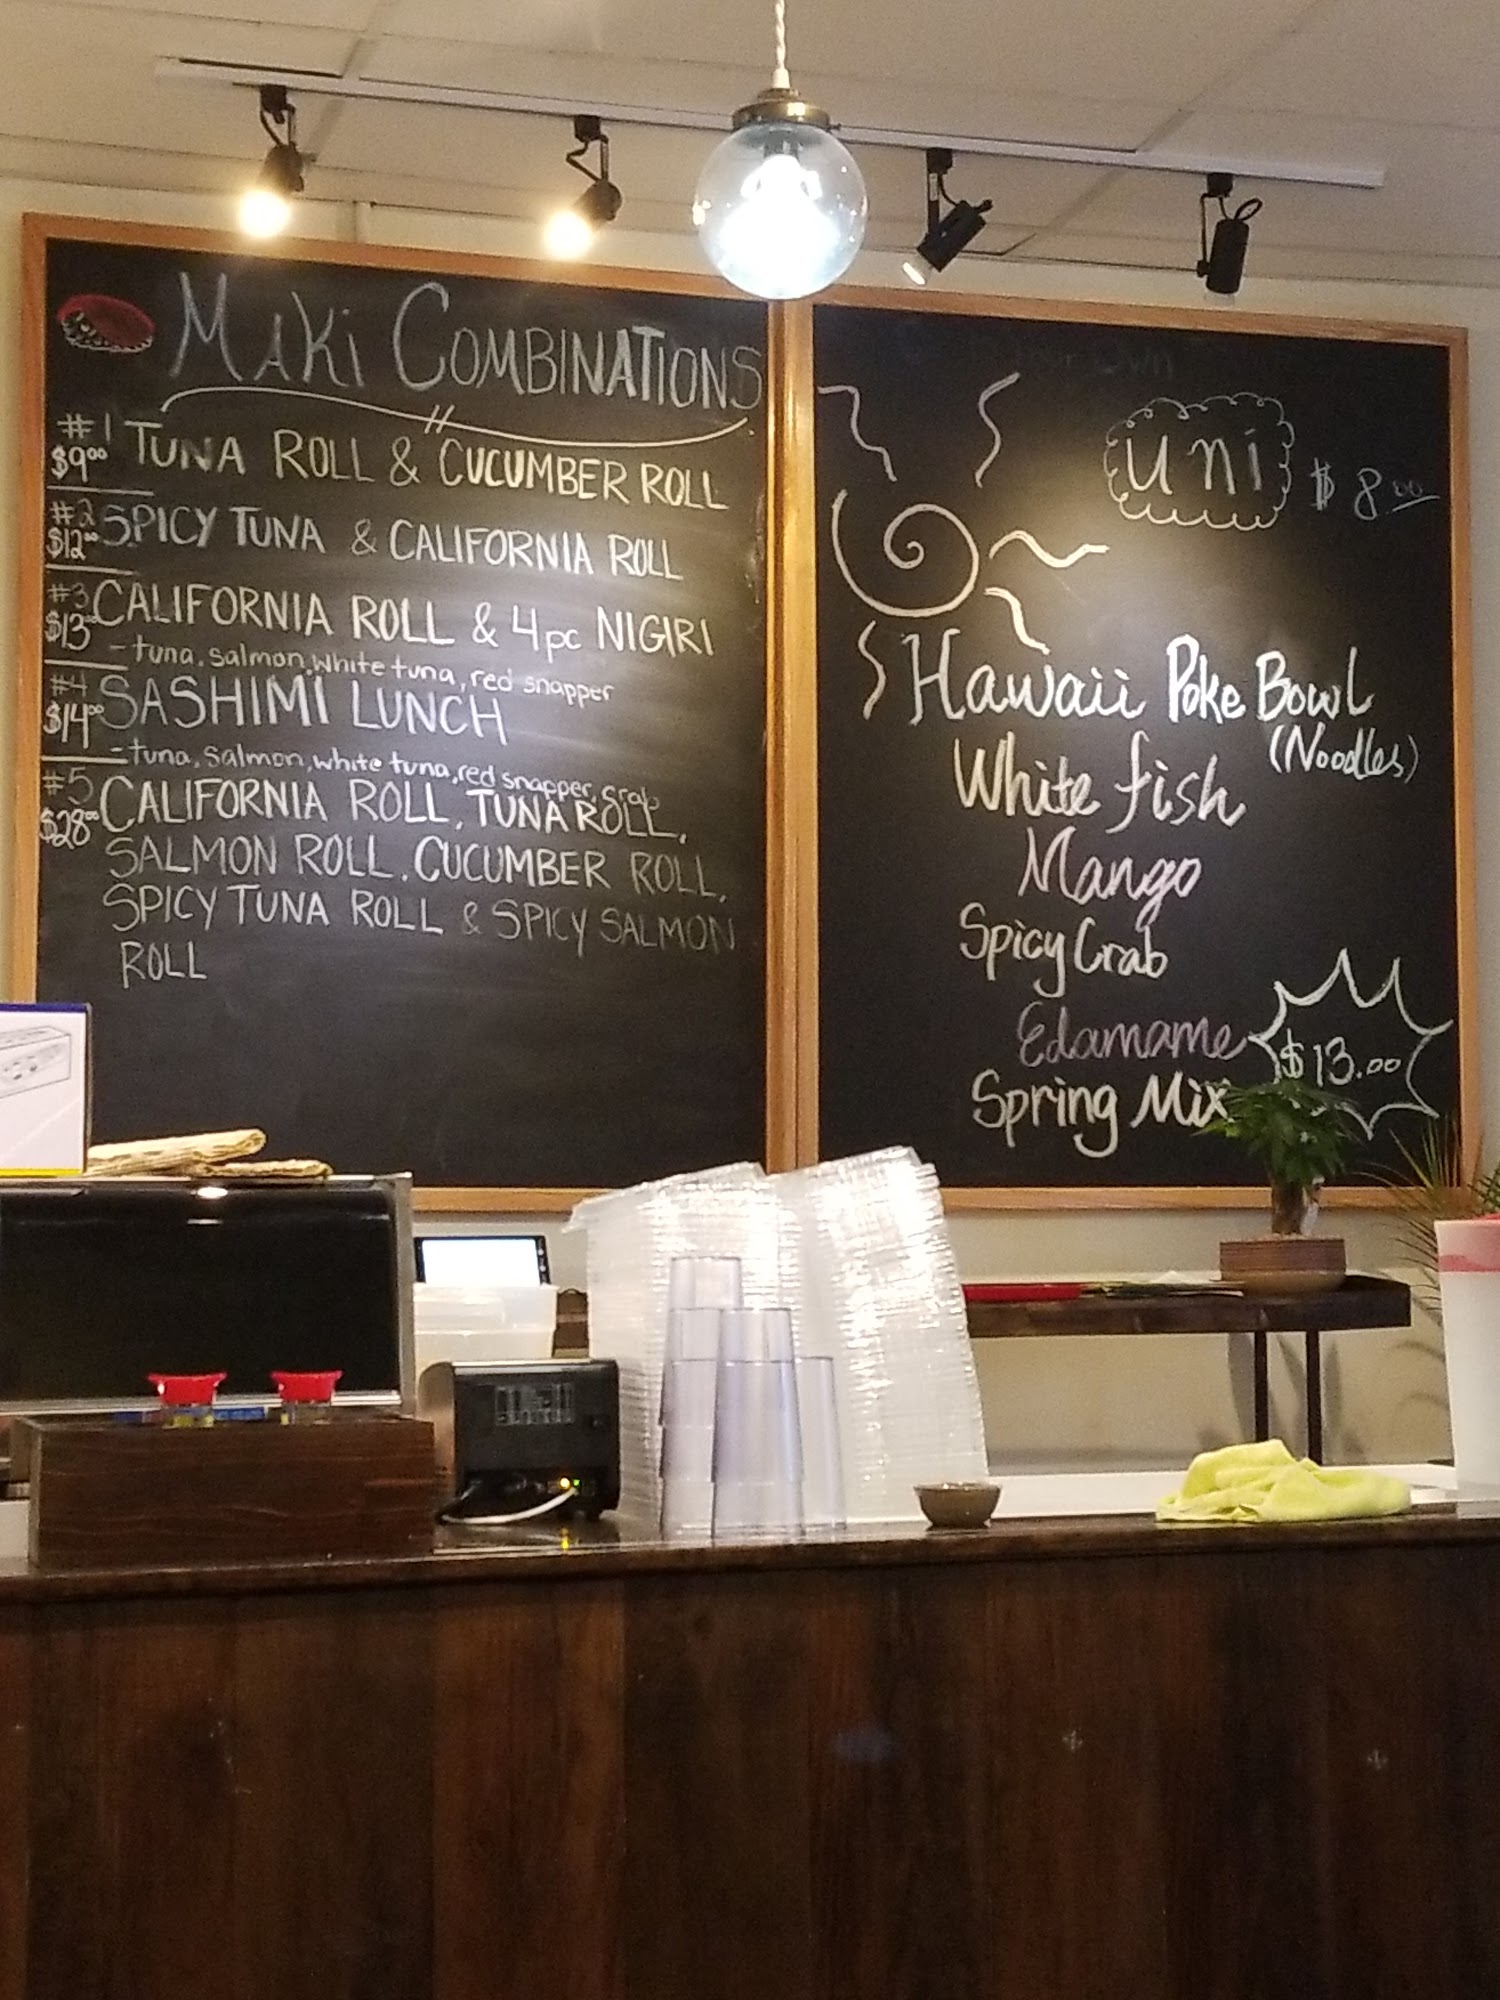 MAKi COMBINATIONS
#1 TUNA ROLL & CUCUMBER ROLL
$9.00
#2 SPICY TUNA & CALIFORNIA ROLL
$12.00
#3 CALIFORNIA ROLL & 4pc NIGIRI
$13.00
- tuna, salmon, white tuna, red snapper
#4 SASHIMI LUNCH
$14.00
- tuna, salmon, white tuna, red snapper, crab
#5 CALIFORNIA ROLL, TUNA ROLL,
$28.00
SALMON ROLL, CUCUMBER ROLL,
SPICY TUNA ROLL & SPICY SALMON
ROLL
Your Own
uni $8.00
Hawaii Poke Bowl
(Noodles)
White fish
Mango
Spicy Crab
Edamame
$13.00
Spring Mix